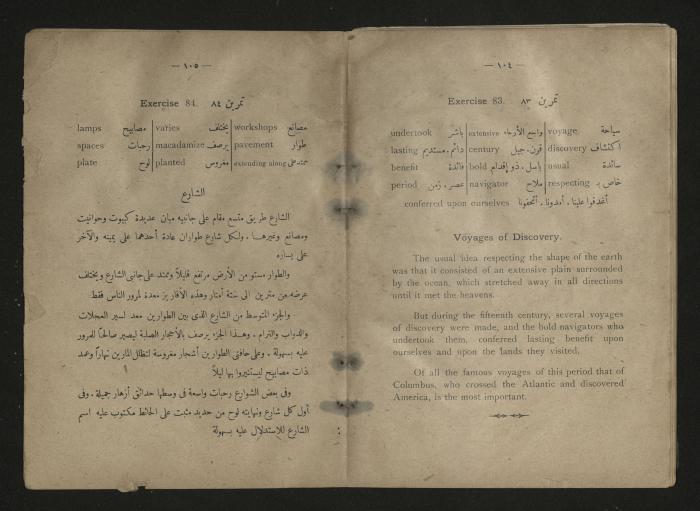 — ١٠٤ —
Exercise 83. تمرين ٨٣
undertook باشر | extensive واسع الأرجاء | voyage سياحة
lasting دائم . مستديم | century قرن . جيل | discovery اكتشاف
benefit فائدة | bold باسل . ذو إقدام | usual سائدة
period عصر . زمن | navigator ملاح | respecting خاص بـ
conferred upon ourselves أغدقوا علينا . أمدونا . أتحفونا
Voyages of Discovery.
The usual idea respecting the shape of the earth
was that it consisted of an extensive plain surrounded
by the ocean, which stretched away in all directions
until it met the heavens.
But during the fifteenth century, several voyages
of discovery were made, and the bold navigators who
undertook them, conferred lasting benefit upon
ourselves and upon the lands they visited.
Of all the famous voyages of this period that of
Columbus, who crossed the Atlantic and discovered
America, is the most important.
— ١٠٥ —
Exercise 84. تمرين ٨٤
lamps مصابيح | varies يختلف | workshops مصانع
spaces رحبات | macadamize يرصف | pavement طوار
plate لوح | planted مغروس | extending along ممتد على
الشارع
الشارع طريق متسع مقام على جانبيه مبان عديدة كبيوت وحوانيت
ومصانع وغيرها . ولكل شارع طواران عادة أحدهما على يمينه والآخر
على يساره
والطوار مستو من الأرض مرتفع قليلاً وممتد على جانبى الشارع ويختلف
عرضه من مترين الى ستة أمتار وهذه الأفاريز معدة لمرور الناس فقط
والجزء المتوسط من الشارع الذى بين الطوارين معد لسير العجلات
والدواب والترام . وهذا الجزء يرصف بالأحجار الصلبة ليصير صالحاً للمرور
عليه بسهولة . وعلى حافتى الطوارين أشجار مغروسة لتظلل المارين نهاراً وعمد
ذات مصابيح ليستنيروا بها ليلاً
وفى بعض الشوارع رحبات واسعة فى وسطها حدائق أزهار جميلة . وفى
أول كل شارع ونهايته لوح من حديد مثبت على الحائط مكتوب عليه اسم
الشارع للاستدلال عليه بسهولة